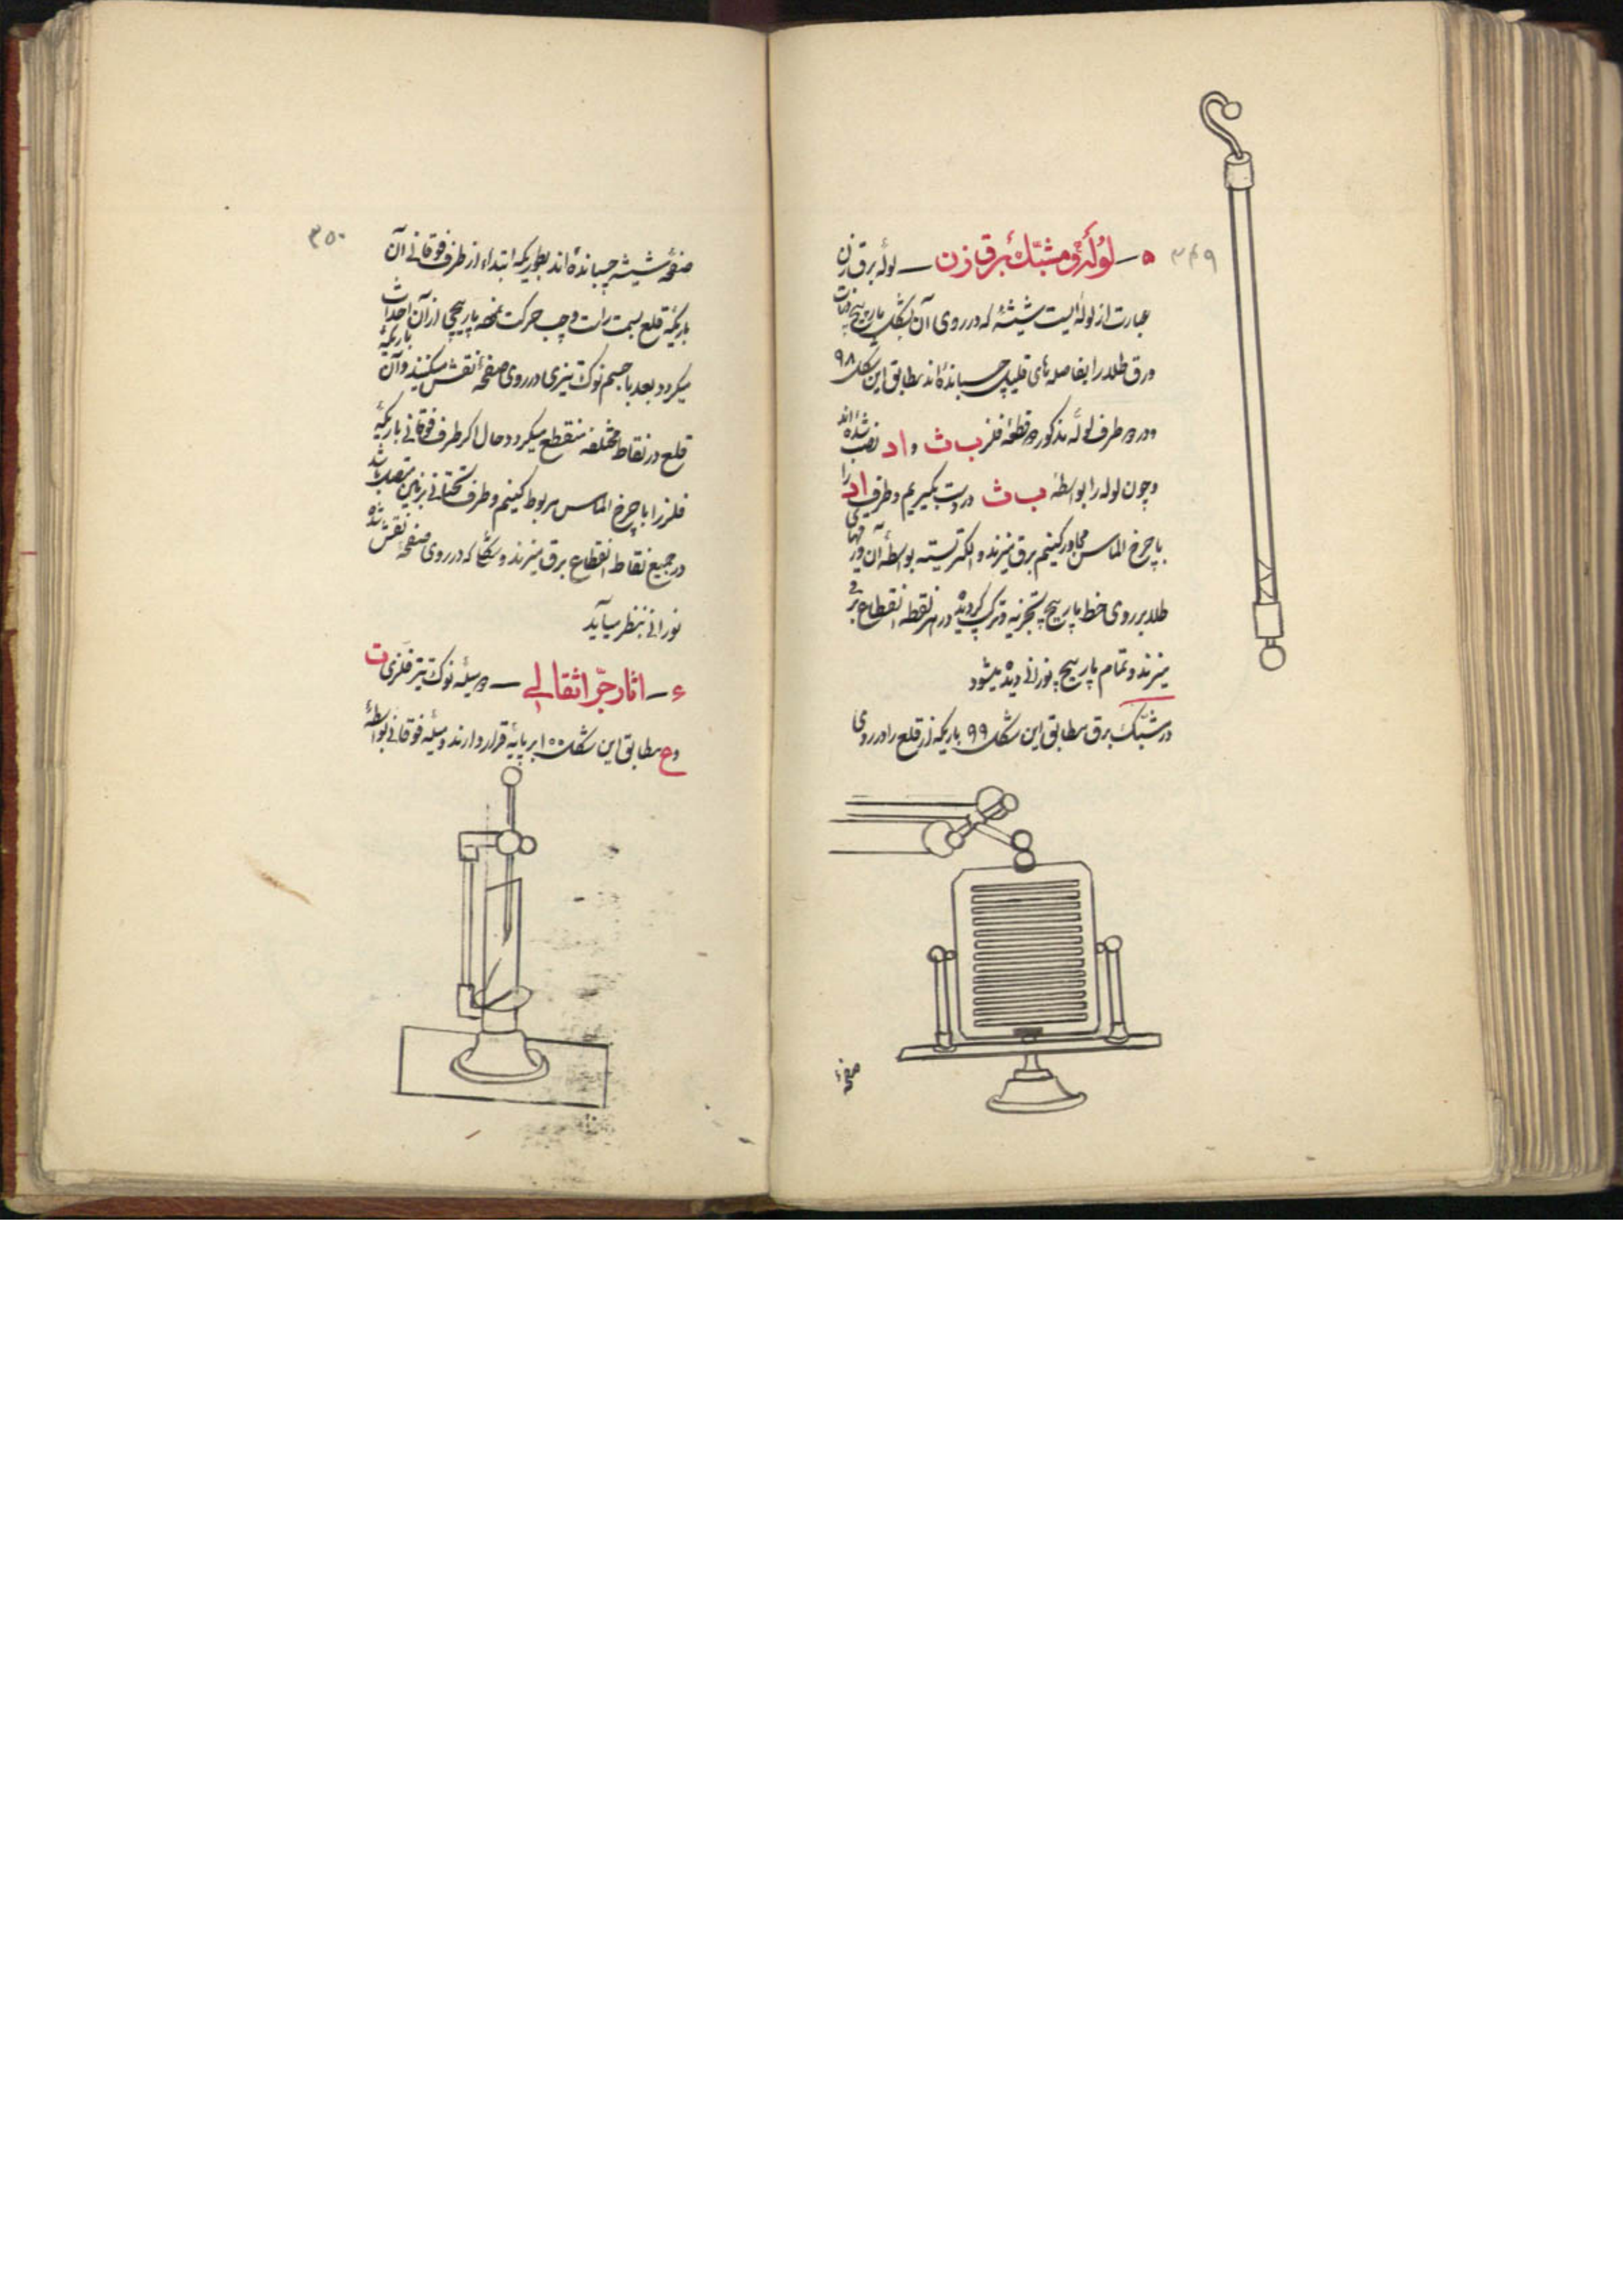 ۳۴۹
۵ - لولهٔ و مشبّک برق زن — لوله برق زن
عبارت از لوله ایست شیشهٔ که در روی آن بشکل مارپیچ
ورق طلا را بفاصله های قلیل چسبانده اند مطابق این شکل ۹۸
و در دو طرف لوله مذکور دو قطعه فلز ب ث و ا د نصب شده اند
و چون لوله را بواسطه ب ث در دست بگیریم و طرف ا د را
با چرخ الماس مجاور کنیم برق میزند و الکتریسته بواسطه آن ورقهای
طلا بر روی خط مارپیچ تجزیه و ترکیب گردیده در هر نقطه انقطاع برق
میزند و تمام مارپیچ نورانی دیده میشود
در مشبّک برق مطابق این شکل ۹۹ باریکه از قلع را در روی
صفحهٔ
۳۵۰
صفحهٔ شیشه چسبانده اند بطوریکه ابتداء از طرف فوقانی آن
باریکهٔ قلع بسمت راست و چپ حرکت نموده مارپیچی از آن احداث
میگردد بعد با جسم نوک تیزی در روی صفحه نقش میکنند و آن باریکهٔ
قلع در نقاط مختلفه منقطع میگردد حال اگر طرف فوقانی باریکهٔ
فلز را با چرخ الماس مربوط کنیم و طرف تحتانی بزمین متصل باشد
در جمیع نقاط انقطاع برق میزند و شکلی که در روی صفحه نقش شده
نورانی بنظر میآید
۶ - آثار جرّ اثقالی — دو میله نوک تیز فلزی ت
و ع مطابق این شکل ۱۰۰ بر پایهٔ قرار دارند و میله فوقانی بواسطهٔ